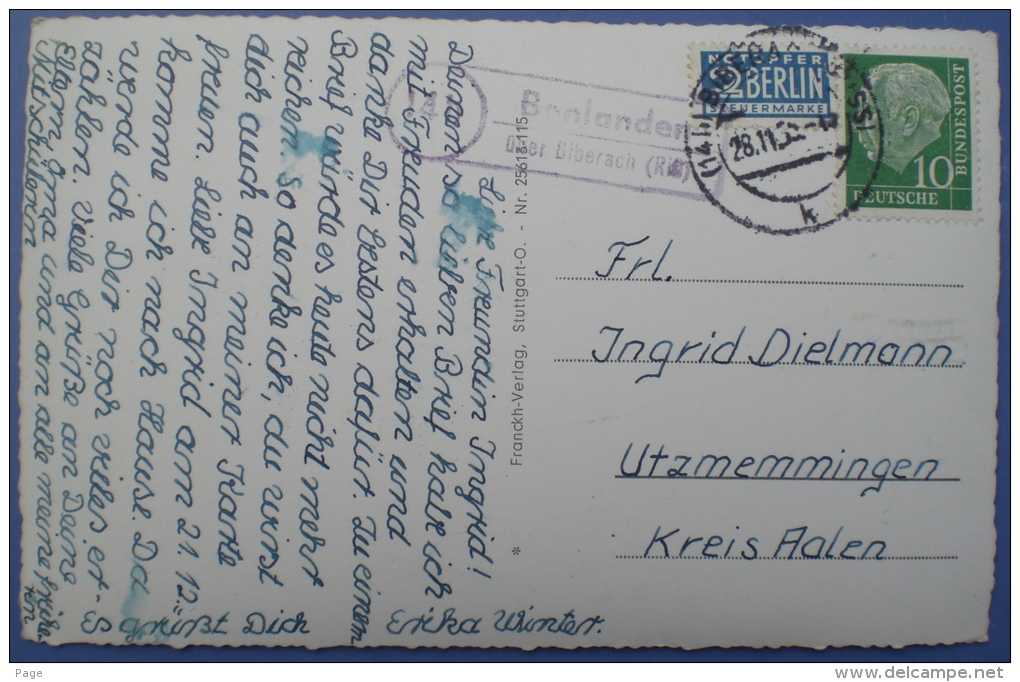 Liebe Freundin Ingrid!
Deinen so lieben Brief habe ich
mit Freuden erhalten und
danke Dir bestens dafür. Zu einem
Brief würde es heute nicht mehr
reichen, so denke ich, du wirst
dich auch an meiner Karte
freuen. Liebe Ingrid am 21. 12.
komme ich nach Hause. Da
werde ich Dir noch vieles er-
zählen. Viele Grüße an Deine
Eltern, Oma und an alle meine frühe-
ren
Mitschülerin
Es grüßt Dich Erika Winter.
* Franckh-Verlag, Stuttgart-O. - Nr. 25613-115
14b
Bonlanden
über Biberach (Riß)
NOTOPFER
2 BERLIN
STEUERMARKE
(14b) BIBERACH
28.11.
k
10
DEUTSCHE
BUNDESPOST
Frl.
Ingrid Dielmann
Utzmemmingen
Kreis Aalen
Page
www.delcampe.net